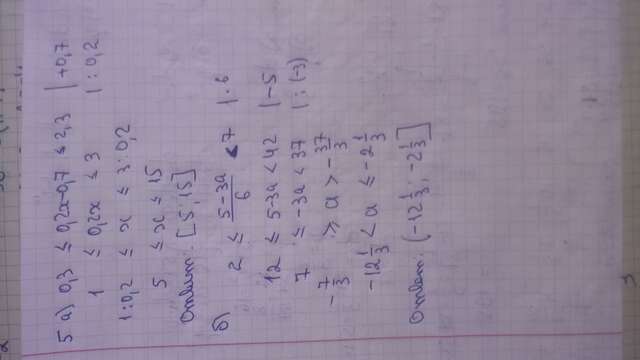 5 а) 0,3 ≤ 0,2x-0,7 ≤ 2,3 | +0,7
1 ≤ 0,2x ≤ 3 | : 0,2
1:0,2 ≤ x ≤ 3:0,2
5 ≤ x ≤ 15
Ответ: [5; 15]
б) 2 ≤ (5-3a)/6 < 7 | · 6
12 ≤ 5-3a < 42 | -5
7 ≤ -3a < 37 | : (-3)
-7/3 ≥ a > -37/3
-12 1/3 < a ≤ -2 1/3
Ответ: (-12 1/3; -2 1/3]